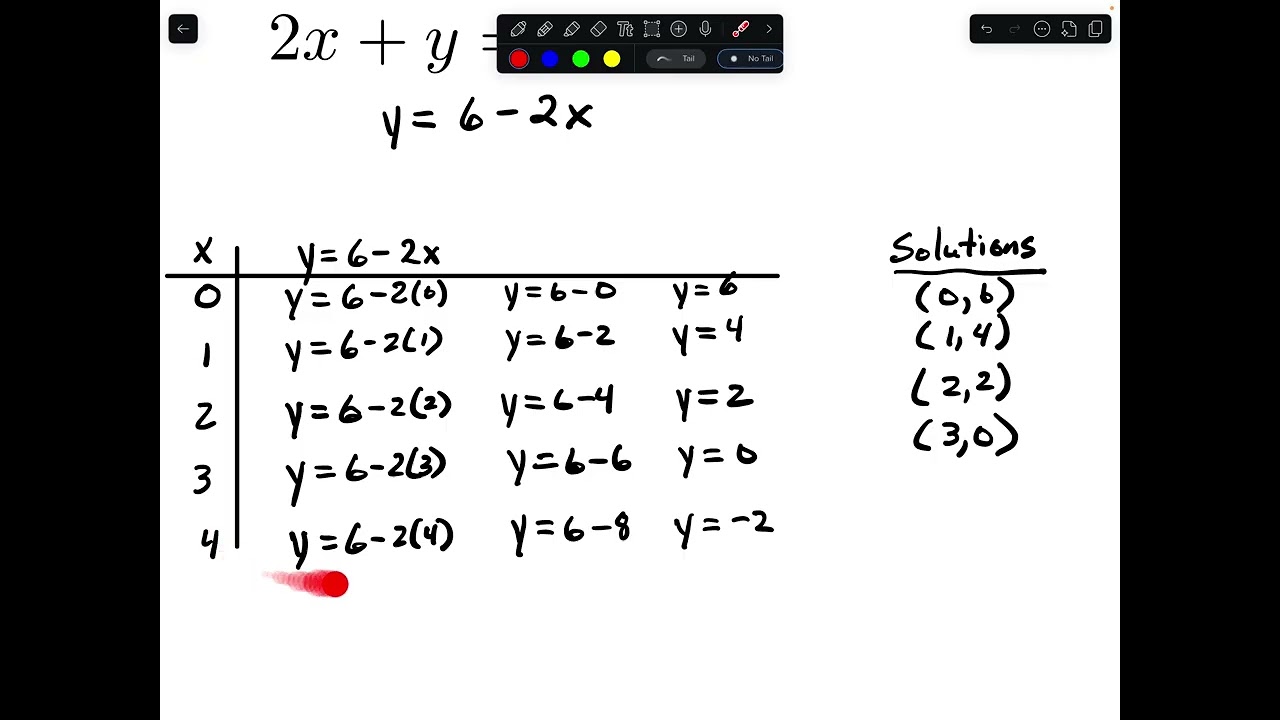 2x + y =
Tt
Tail
No Tail
y = 6 - 2x
x y = 6 - 2x Solutions
0 y = 6 - 2(0) y = 6 - 0 y = 6 (0, 6)
1 y = 6 - 2(1) y = 6 - 2 y = 4 (1, 4)
2 y = 6 - 2(2) y = 6 - 4 y = 2 (2, 2)
3 y = 6 - 2(3) y = 6 - 6 y = 0 (3, 0)
4 y = 6 - 2(4) y = 6 - 8 y = -2